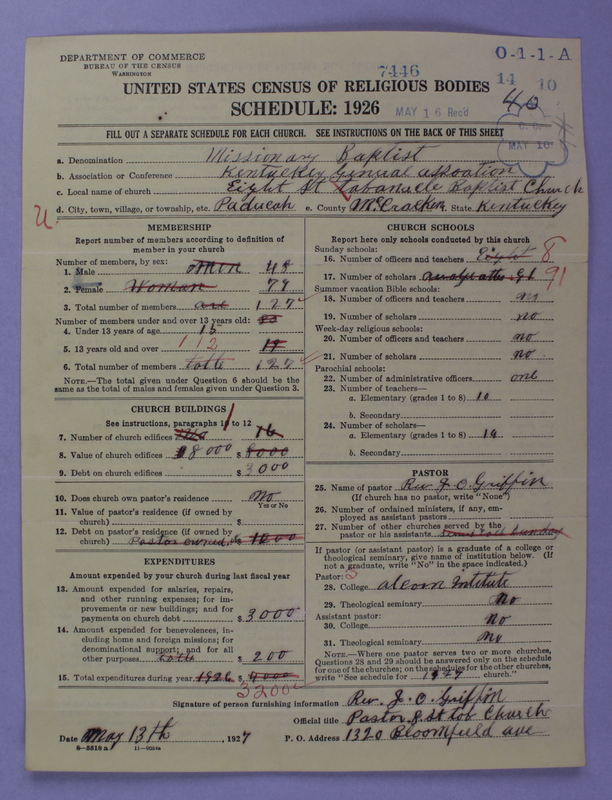 DEPARTMENT OF COMMERCE
BUREAU OF THE CENSUS
WASHINGTON
7446
O-1-1-A
14 10
UNITED STATES CENSUS OF RELIGIOUS BODIES
40
SCHEDULE: 1926
MAY 16 Rec'd
MAY 10
FILL OUT A SEPARATE SCHEDULE FOR EACH CHURCH. SEE INSTRUCTIONS ON THE BACK OF THIS SHEET
a. Denomination Missionary Baptist
b. Association or Conference Kentuckey Genual assoation
c. Local name of church Eight St Tabanucle Baptist Church
d. City, town, village, or township, etc. Paducah e. County McCracken State Kentuckey
MEMBERSHIP
Report number of members according to definition of
member in your church
Number of members, by sex:
1. Male 48
2. Female Woman 79
3. Total number of members 127
Number of members under and over 13 years old:
4. Under 13 years of age 15
5. 13 years old and over 112
6. Total number of members 127
NOTE.—The total given under Question 6 should be
same as the total of males and females given under Question 3.
CHURCH BUILDINGS
See instructions, paragraphs 10 to 12
7. Number of church edifices 1
8. Value of church edifices $8000 $ 8000
9. Debt on church edifices $ 3000
10. Does church own pastor's residence No
Yes or No
11. Value of pastor's residence (if owned by
church) $
12. Debt on pastor's residence (if owned by
church) Pastor owned $
EXPENDITURES
Amount expended by your church during last fiscal year
13. Amount expended for salaries, repairs,
and other running expenses; for im-
provements or new buildings; and for
payments on church debt $ 3000
14. Amount expended for benevolences, in-
cluding home and foreign missions; for
denominational support; and for all
other purposes $ 200
15. Total expenditures during year 1926 $
3200
CHURCH SCHOOLS
Report here only schools conducted by this church
Sunday schools:
16. Number of officers and teachers Eight 8
17. Number of scholars 91 91
Summer vacation Bible schools:
18. Number of officers and teachers no
19. Number of scholars no
Week-day religious schools:
20. Number of officers and teachers no
21. Number of scholars no
Parochial schools:
22. Number of administrative officers one
23. Number of teachers—
a. Elementary (grades 1 to 8) 10
b. Secondary
24. Number of scholars—
a. Elementary (grades 1 to 8) 19
b. Secondary
PASTOR
25. Name of pastor Rev J. O. Griffin
(If church has no pastor, write "None")
26. Number of ordained ministers, if any, em-
ployed as assistant pastors
27. Number of other churches served by the
pastor or his assistants
If pastor (or assistant pastor) is a graduate of a college or
theological seminary, give name of institution below. (If
not a graduate, write "No" in the space indicated.)
Pastor:
28. College alcorn Institute
29. Theological seminary No
Assistant pastor:
30. College No
31. Theological seminary No
NOTE.—Where one pastor serves two or more churches,
Questions 28 and 29 should be answered only on the schedule
for one of the churches; on the schedules for the other churches,
write "See schedule for 1927 church."
Signature of person furnishing information Rev. J. O. Griffin
Official title Pastor 8 St tob Church
Date May 13th, 1927 P. O. Address 1320 Bloomfield ave
8—5518 a 11—9084a